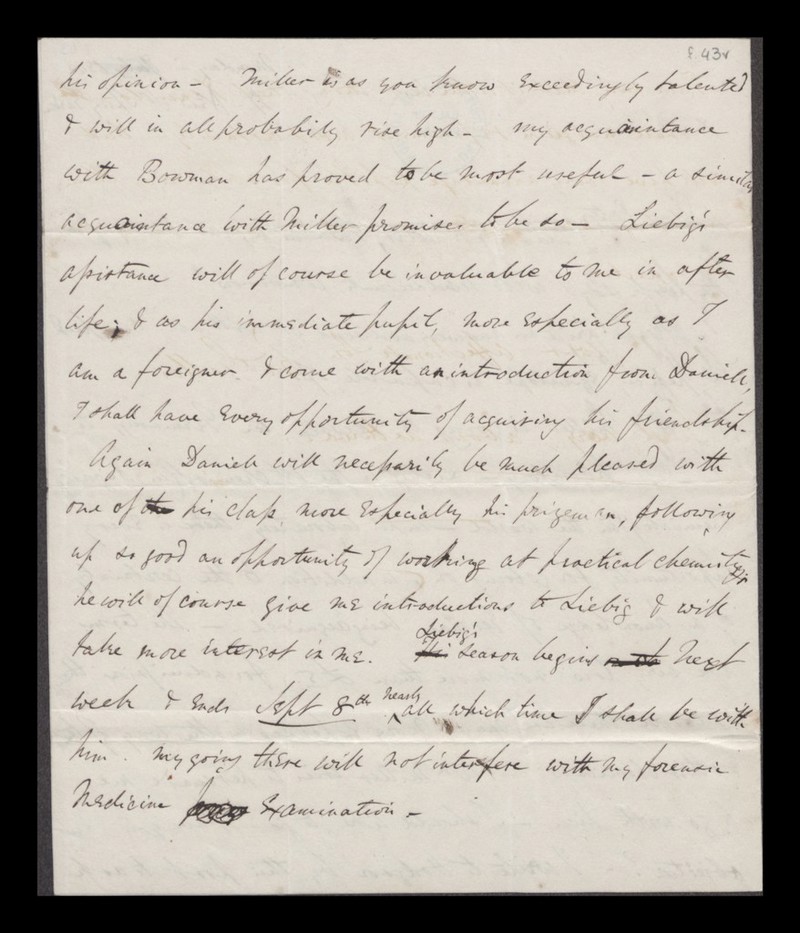 f. 43v
his opinion – Miller is as you know exceedingly talented
& will in all probability rise high – my acquaintance
with Bowman has proved to be most useful – a similar
acquaintance with Miller promises to be so – Liebig's
assistance will of course be invaluable to me in after
life; & as his immediate pupil, more especially as I
am a foreigner & come with an introduction from Daniell,
I shall have every opportunity of acquiring his friendship.
Again Daniell will necessarily be much pleased with
one of the his class, more especially his prizeman, following
up so good an opportunity of working at practical chemistry,
he will of course give me introductions to Liebig & will
take more interest in me. His Liebig's season begins next
week & ends Sept 8th nearly all which time I shall be with
him. my going there will not interfere with my forensic
Medicine Examination –